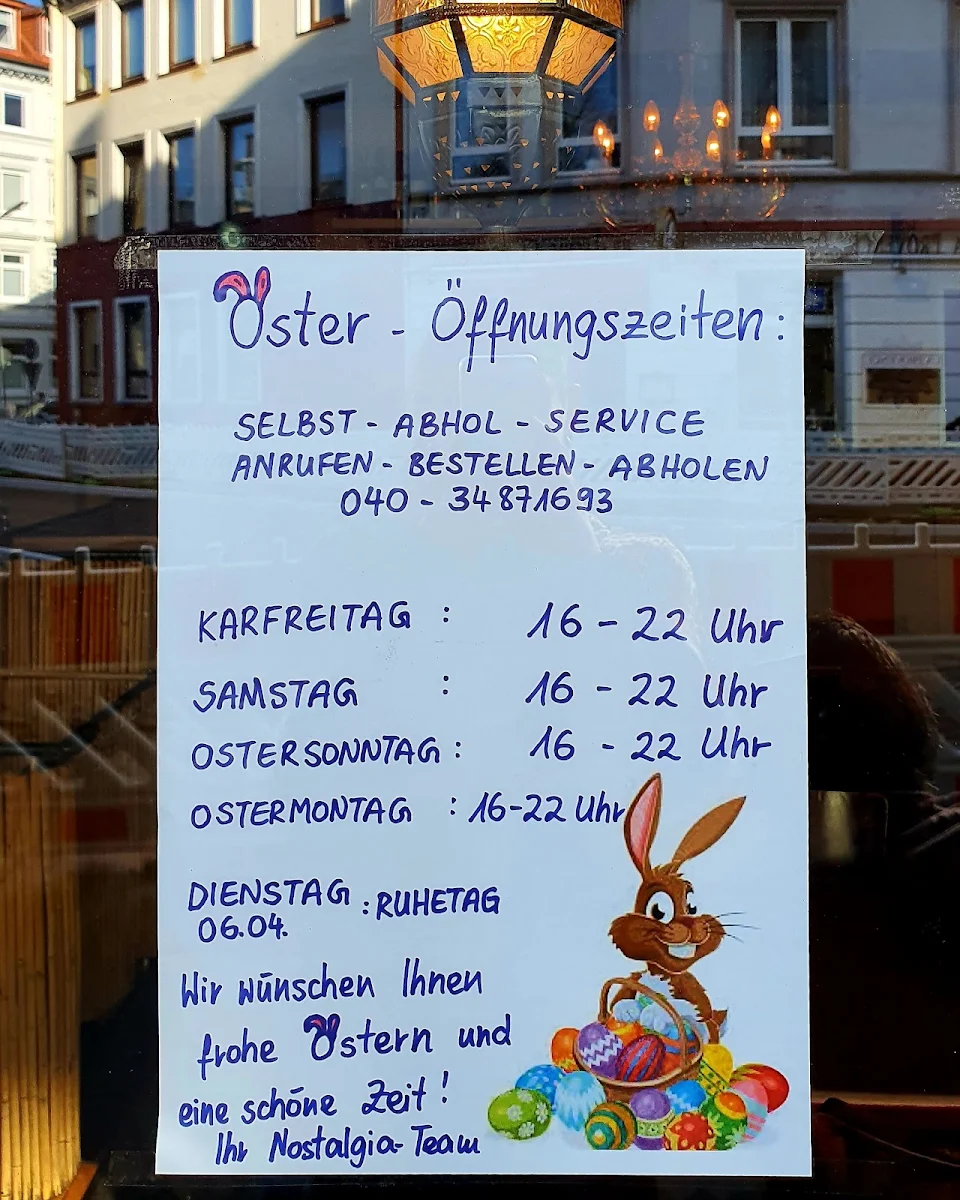 Oster - Öffnungszeiten:
SELBST - ABHOL - SERVICE
ANRUFEN - BESTELLEN - ABHOLEN
040 - 34871693
KARFREITAG : 16 - 22 Uhr
SAMSTAG : 16 - 22 Uhr
OSTERSONNTAG : 16 - 22 Uhr
OSTERMONTAG : 16-22 Uhr
DIENSTAG : RUHETAG
06.04.
Wir wünschen Ihnen
frohe Ostern und
eine schöne Zeit!
Ihr Nostalgia-Team